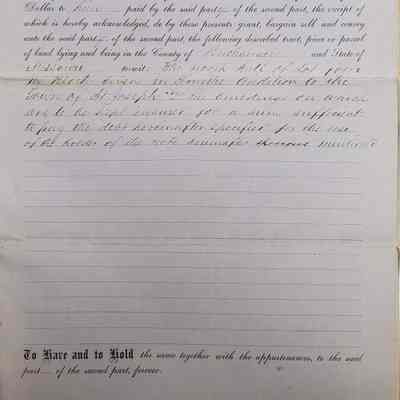 Dollar to them paid by the said party of the second part, the receipt of
which is hereby acknowledged, do by these presents grant, bargain sell and convey
unto the said part of the second part, the following described tract, piece or parcel
of land lying and being in the County of Buchanan and State of
Missouri to-wit: The north half of Lot four
in Block seven in Smiths Addition to the
Town of St Joseph the buildings on which
are to be kept insured for a sum sufficient
to pay the debt hereinafter specified for the use
of the holder of the note hereinafter mentioned
To Have and to Hold the same together with the appurtenances, to the said
part of the second part, forever.